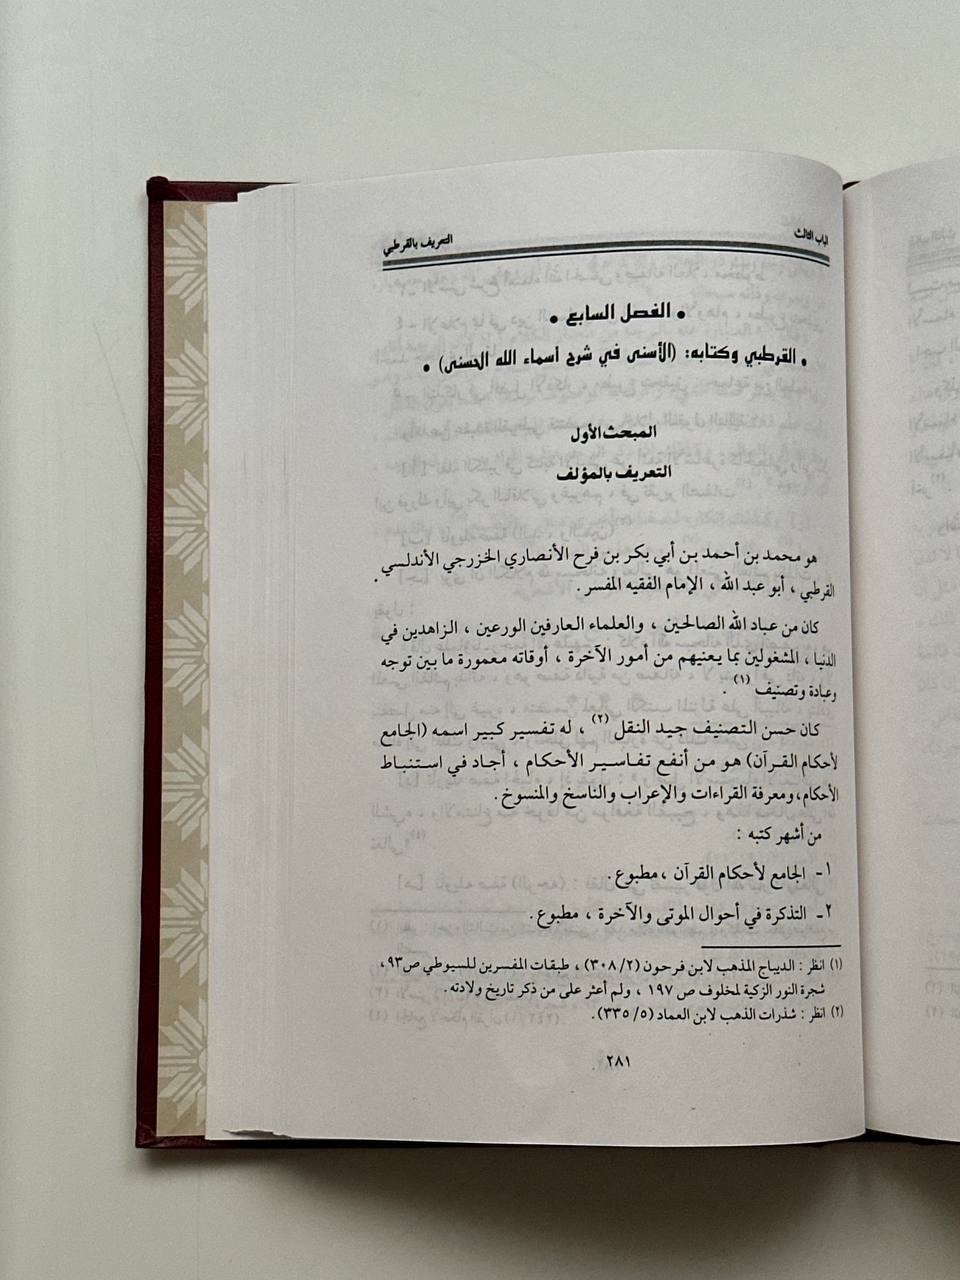 الباب الثالث
التعريف بالقرطبي
• الفصل السابع •
• القرطبي وكتابه: (الأسنى في شرح أسماء الله الحسنى) •
المبحث الأول
التعريف بالمؤلف
هو محمد بن أحمد بن أبي بكر بن فرح الأنصاري الخزرجي الأندلسي
القرطبي ، أبو عبد الله ، الإمام الفقيه المفسر .
كان من عباد الله الصالحين ، والعلماء العارفين الورعين ، الزاهدين في
الدنيا ، المشغولين بما يعنيهم من أمور الآخرة ، أوقاته معمورة ما بين توجه
وعبادة وتصنيف (١) .
كان حسن التصنيف جيد النقل (٢) ، له تفسير كبير اسمه (الجامع
لأحكام القرآن) هو من أنفع تفاسير الأحكام ، أجاد في استنباط
الأحكام، ومعرفة القراءات والإعراب والناسخ والمنسوخ.
من أشهر كتبه :
١- الجامع لأحكام القرآن ، مطبوع.
٢- التذكرة في أحوال الموتى والآخرة ، مطبوع.
(١) انظر : الديباج المذهب لابن فرحون (٣٠٨/٢) ، طبقات المفسرين للسيوطي ص٩٣ ،
شجرة النور الزكية لمخلوف ص ١٩٧ ، ولم أعثر على من ذكر تاريخ ولادته.
(٢) انظر : شذرات الذهب لابن العماد (٣٣٥/٥).
٢٨١